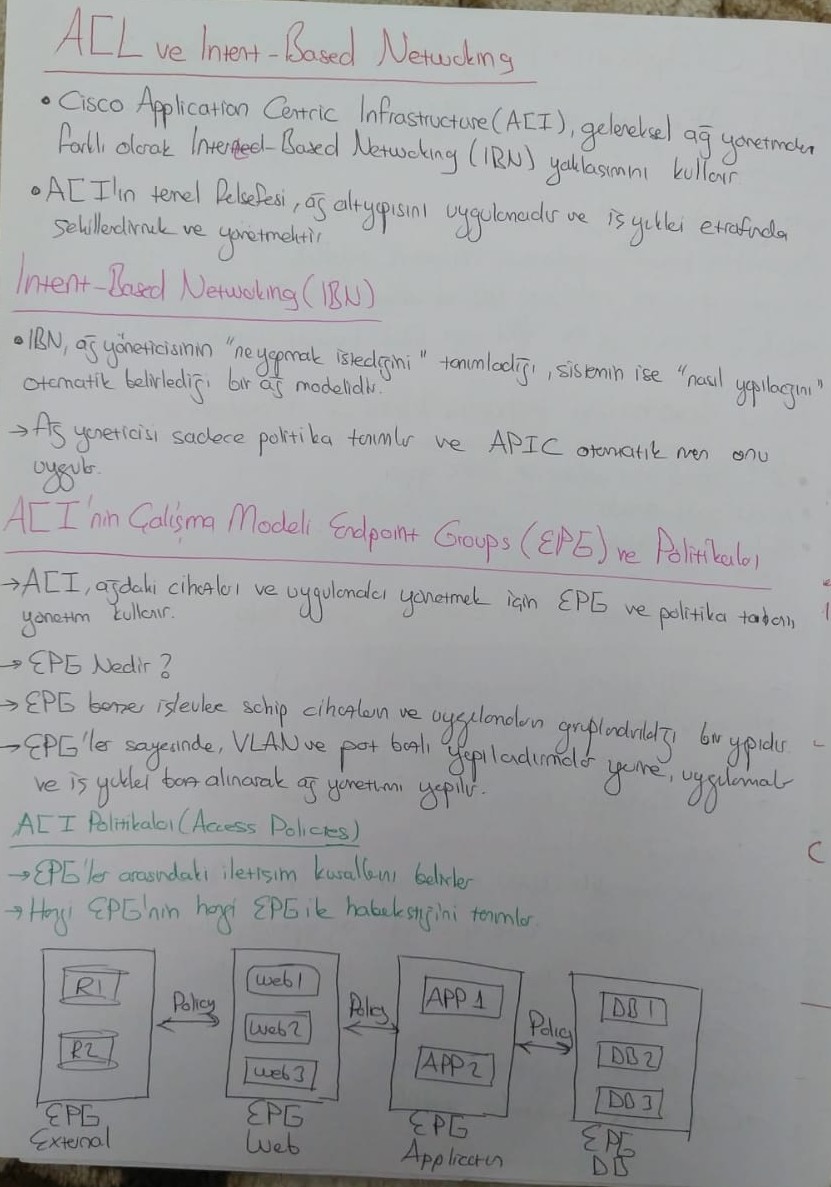 ACI ve Intent-Based Networking
• Cisco Application Centric Infrastructure (ACI), geleneksel ağ yönetiminden
farklı olarak Intented-Based Networking (IBN) yaklaşımını kullanır
• ACI'ın temel felsefesi, ağ altyapısını uygulamalar ve iş yükleri etrafında
şekillendirmek ve yönetmektir
Intent-Based Networking (IBN)
• IBN, ağ yöneticisinin "ne yapmak istediğini" tanımladığı, sistemin ise "nasıl yapılacağını"
otomatik belirlediği bir ağ modelidir.
→ Ağ yöneticisi sadece politika tanımlar ve APIC otomatik onu
uygular.
ACI'nin Çalışma Modeli Endpoint Groups (EPG) ve Politikaları
→ ACI, ağdaki cihazları ve uygulamaları yönetmek için EPG ve politika tabanlı
yönetim kullanır.
→ EPG Nedir?
→ EPG benzer işlevlere sahip cihazların ve uygulamaların gruplandırıldığı bir yapıdır
→ EPG'ler sayesinde, VLAN ve port bazlı yapılandırmalar yerine, uygulamalar
ve iş yükleri baz alınarak ağ yönetimi yapılır.
ACI Politikaları (Access Policies)
→ EPG'ler arasındaki iletişim kurallarını belirler
→ Hangi EPG'nin hangi EPG ile haberleştiğini tanımlar.
R1 R2
Policy
web1 web2 web3
Policy
APP 1 APP 2
Policy
DB 1 DB 2 DB 3
EPG External
EPG Web
EPG Application
EPG DB